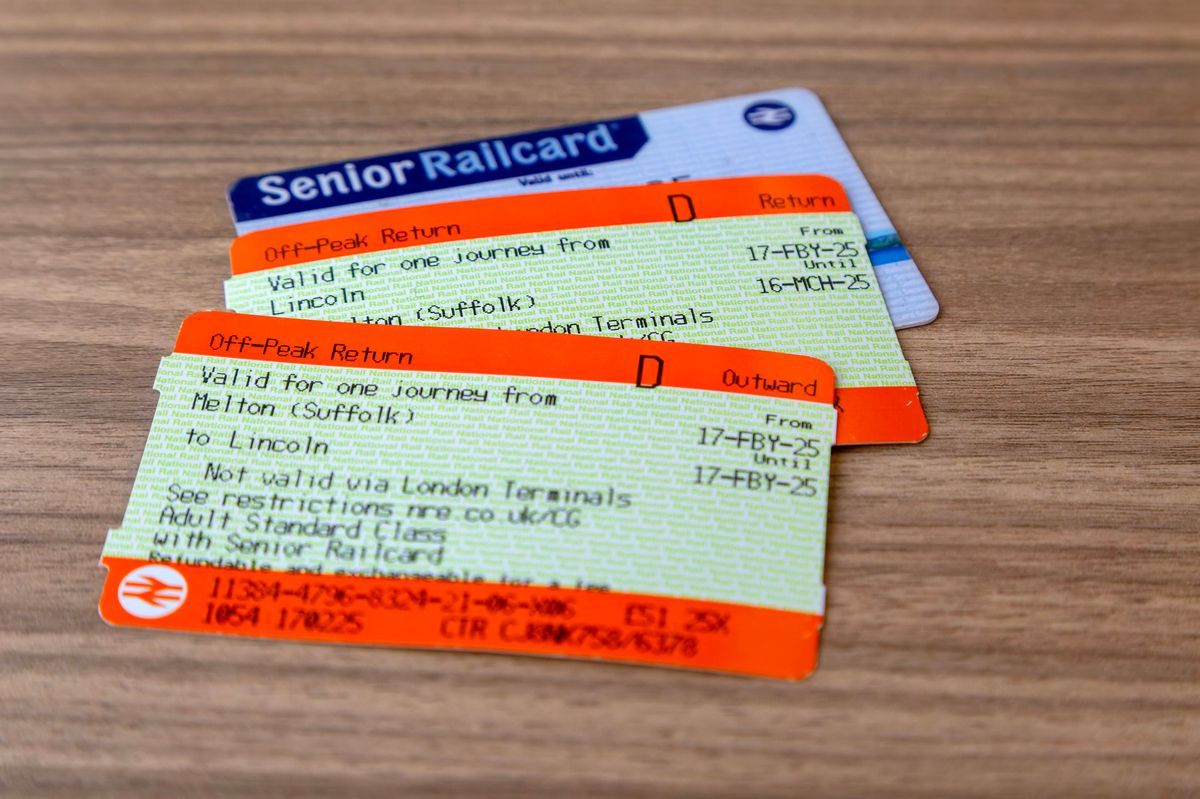 Senior Railcard
Valid until:
Off-Peak Return D Return
Valid for one journey from From
Lincoln 17-FBY-25
Until
(Suffolk) 16-MCH-25
London Terminals
Off-Peak Return D Outward
Valid for one journey from
Melton (Suffolk) From
to Lincoln 17-FBY-25
Until
Not valid via London Terminals 17-FBY-25
See restrictions nre.co.uk/CG
Adult Standard Class
with Senior Railcard
Refundable and exchangeable for a fee
11384-4796-8324-21-06- ES1 25X
1054 170225 CTR